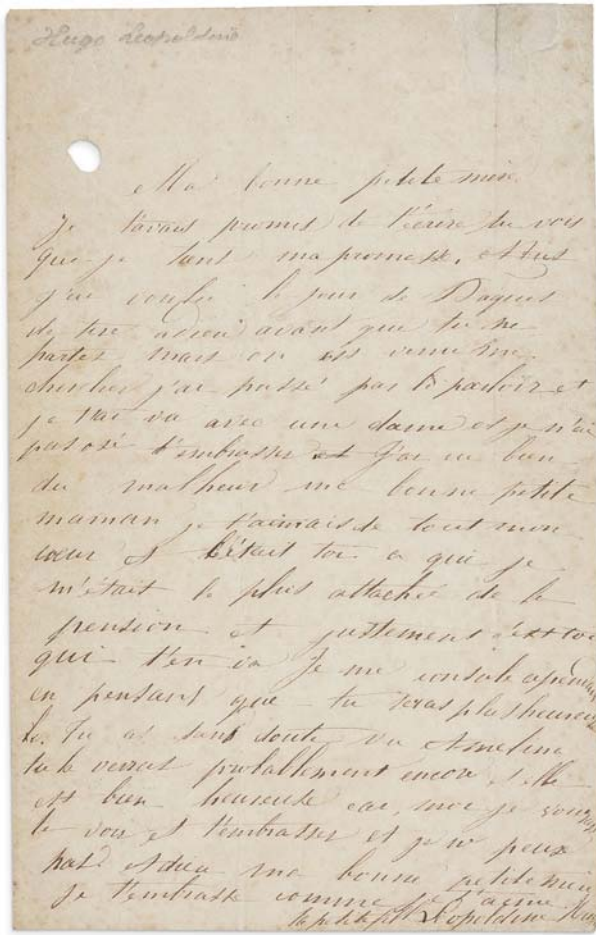 Hugo Leopoldine
Ma bonne petite mère
Je t'avais promis de t'écrire tu vois
que je tiens ma promesse.
j'ai voulu le jour de Paques
te dire adieu avant que tu ne
partes mais on est venu me
chercher j'ai passé par le parloir et
je t'ai vu avec une dame et je n'ai
pas osé t'embrasser et J'ai eu bien
du malheur ma bonne petite
maman je t'aimais de tout mon
cœur et c'était toi a qui je
m'était le plus attachée de la
pension et justement c'est toi
qui t'en va Je me console cependant
en pensant que tu seras plus heureuse
Tu as sans doute vu
tu le verras probablement encore
est bien heureuse car, moi je voudrais
te voir et t'embrasser et je ne peux
pas adieu ma bonne petite mère
Je t'embrasse comme je t'aime
ta petite fille Léopoldine Hugo